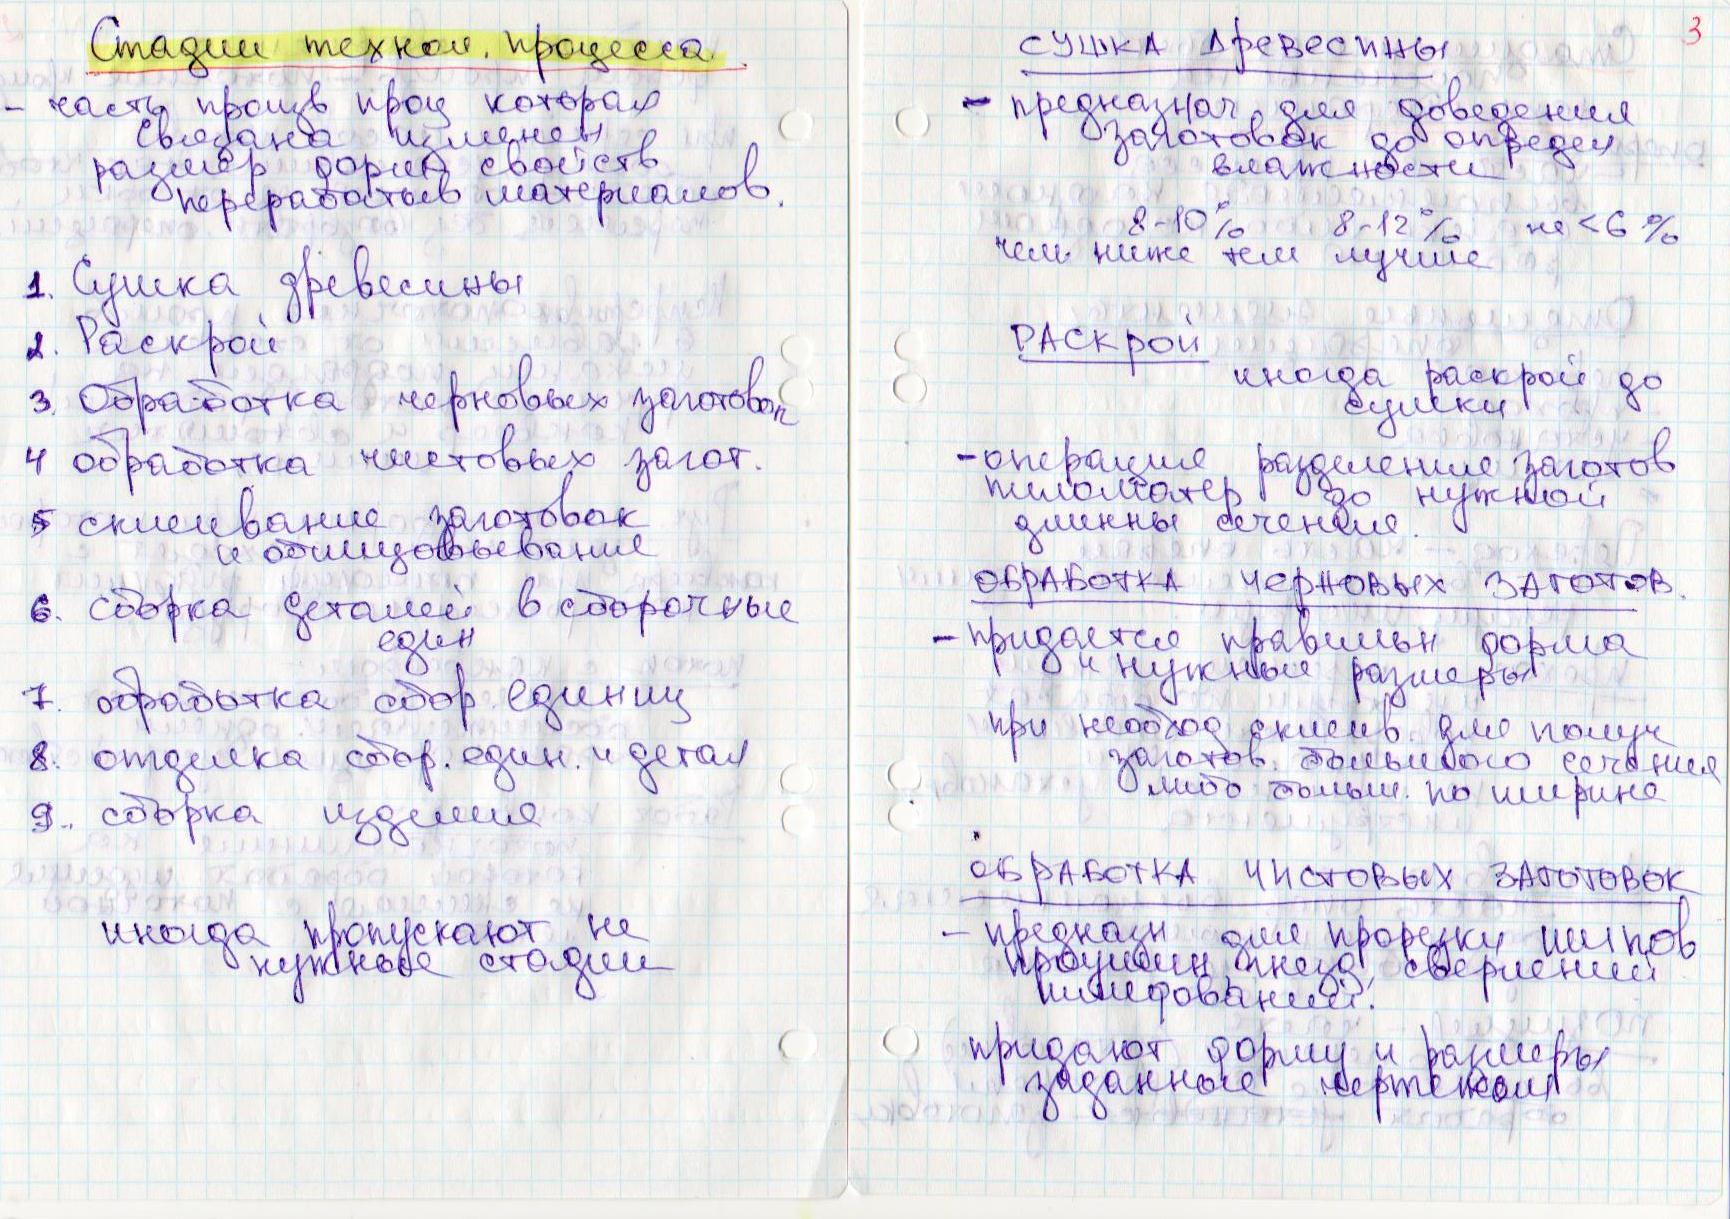 Стадии технол. процесса
- часть произв проц которая
связана изменен
размер форм свойств
перерабатыв материалов.
1. Сушка древесины
2. Раскрой
3. Обработка черновых заготовок
4 обработка чистовых загот.
5 склеивание заготовок
и облицовывание
6. сборка деталей в сборочные
един
7. обработка сбор. единиц
8. отделка сбор. един. и детал
9. сборка изделия
иногда пропускают не
нужные стадии
3
СУШКА ДРЕВЕСИНЫ
- предназнач для доведения
заготовок до определ
влажности
8-10% 8-12% не <6%
чем ниже тем лучше
РАСКРОЙ
иногда раскрой до
сушки
- операция разделение заготов
пиломатер до нужной
длинны сечения.
ОБРАБОТКА ЧЕРНОВЫХ ЗАГОТОВ.
- придается правильн форма
и нужные размеры
при необход склеив. для получ
заготов. большого сечения
либо больш. по ширине
ОБРАБОТКА ЧИСТОВЫХ ЗАГОТОВОК
- предназн для прорезки шипов
проушин, гнезд, сверлений
шлифований.
придают форму и размеры
заданные чертежом